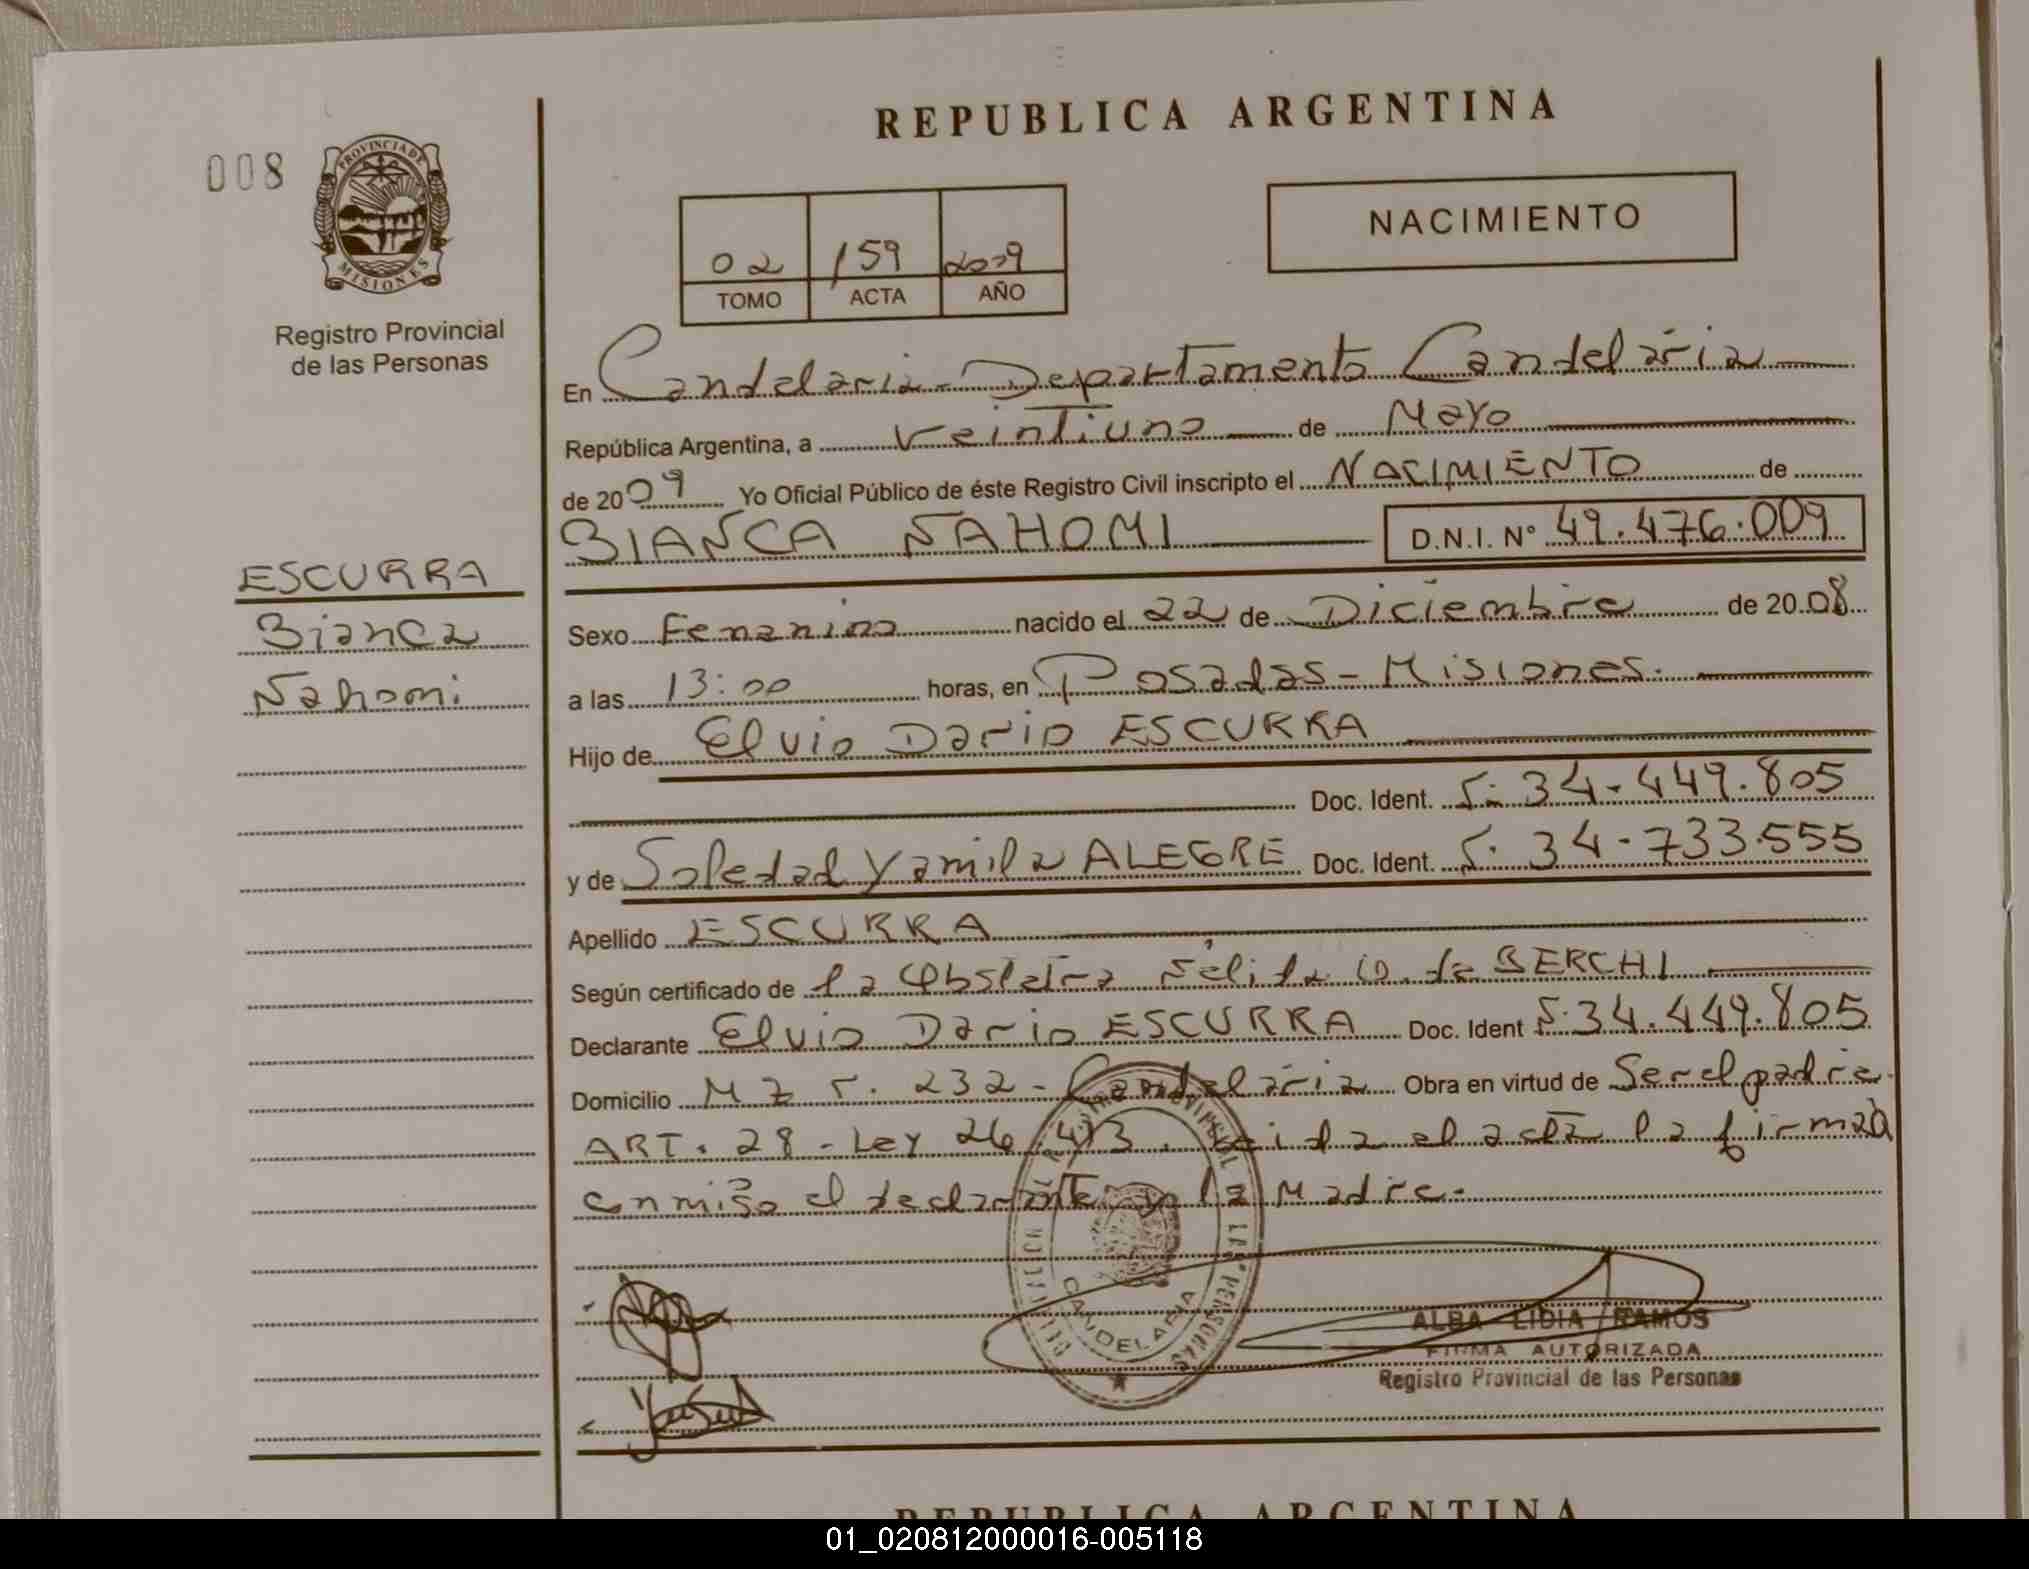 REPUBLICA ARGENTINA
008
PROVINCIA DE
MISIONES
Registro Provincial
de las Personas
02 159 2009
TOMO ACTA AÑO
NACIMIENTO
En Candelaria - Departamento Candelaria
República Argentina, a veintiuno de Mayo
de 2009 Yo Oficial Público de éste Registro Civil inscripto el NACIMIENTO de
BIANCA NAHOMI D.N.I. N° 49.476.009
ESCURRA
Bianca
Nahomi
Sexo Femenino nacido el 22 de Diciembre de 2008
a las 13:00 horas, en Posadas - Misiones.
Hijo de Elvio Dario ESCURRA
Doc. Ident. N: 34.449.805
y de Soledad Yamila ALEGRE Doc. Ident. N. 34.733.555
Apellido ESCURRA
Según certificado de la Obstetra Nélida de BERCHI
Declarante Elvio Dario ESCURRA Doc. Ident N. 34.449.805
Domicilio Mz N. 232 - Candelaria Obra en virtud de Ser el padre.
ART. 28 - Ley 26.413. Leida el acta la firmaà
conmigo el declarante y la Madre.
CANDELARIA
ALBA LIDIA RAMOS
FIRMA AUTORIZADA
Registro Provincial de las Personas
REPUBLICA ARGENTINA
01_020812000016-005118